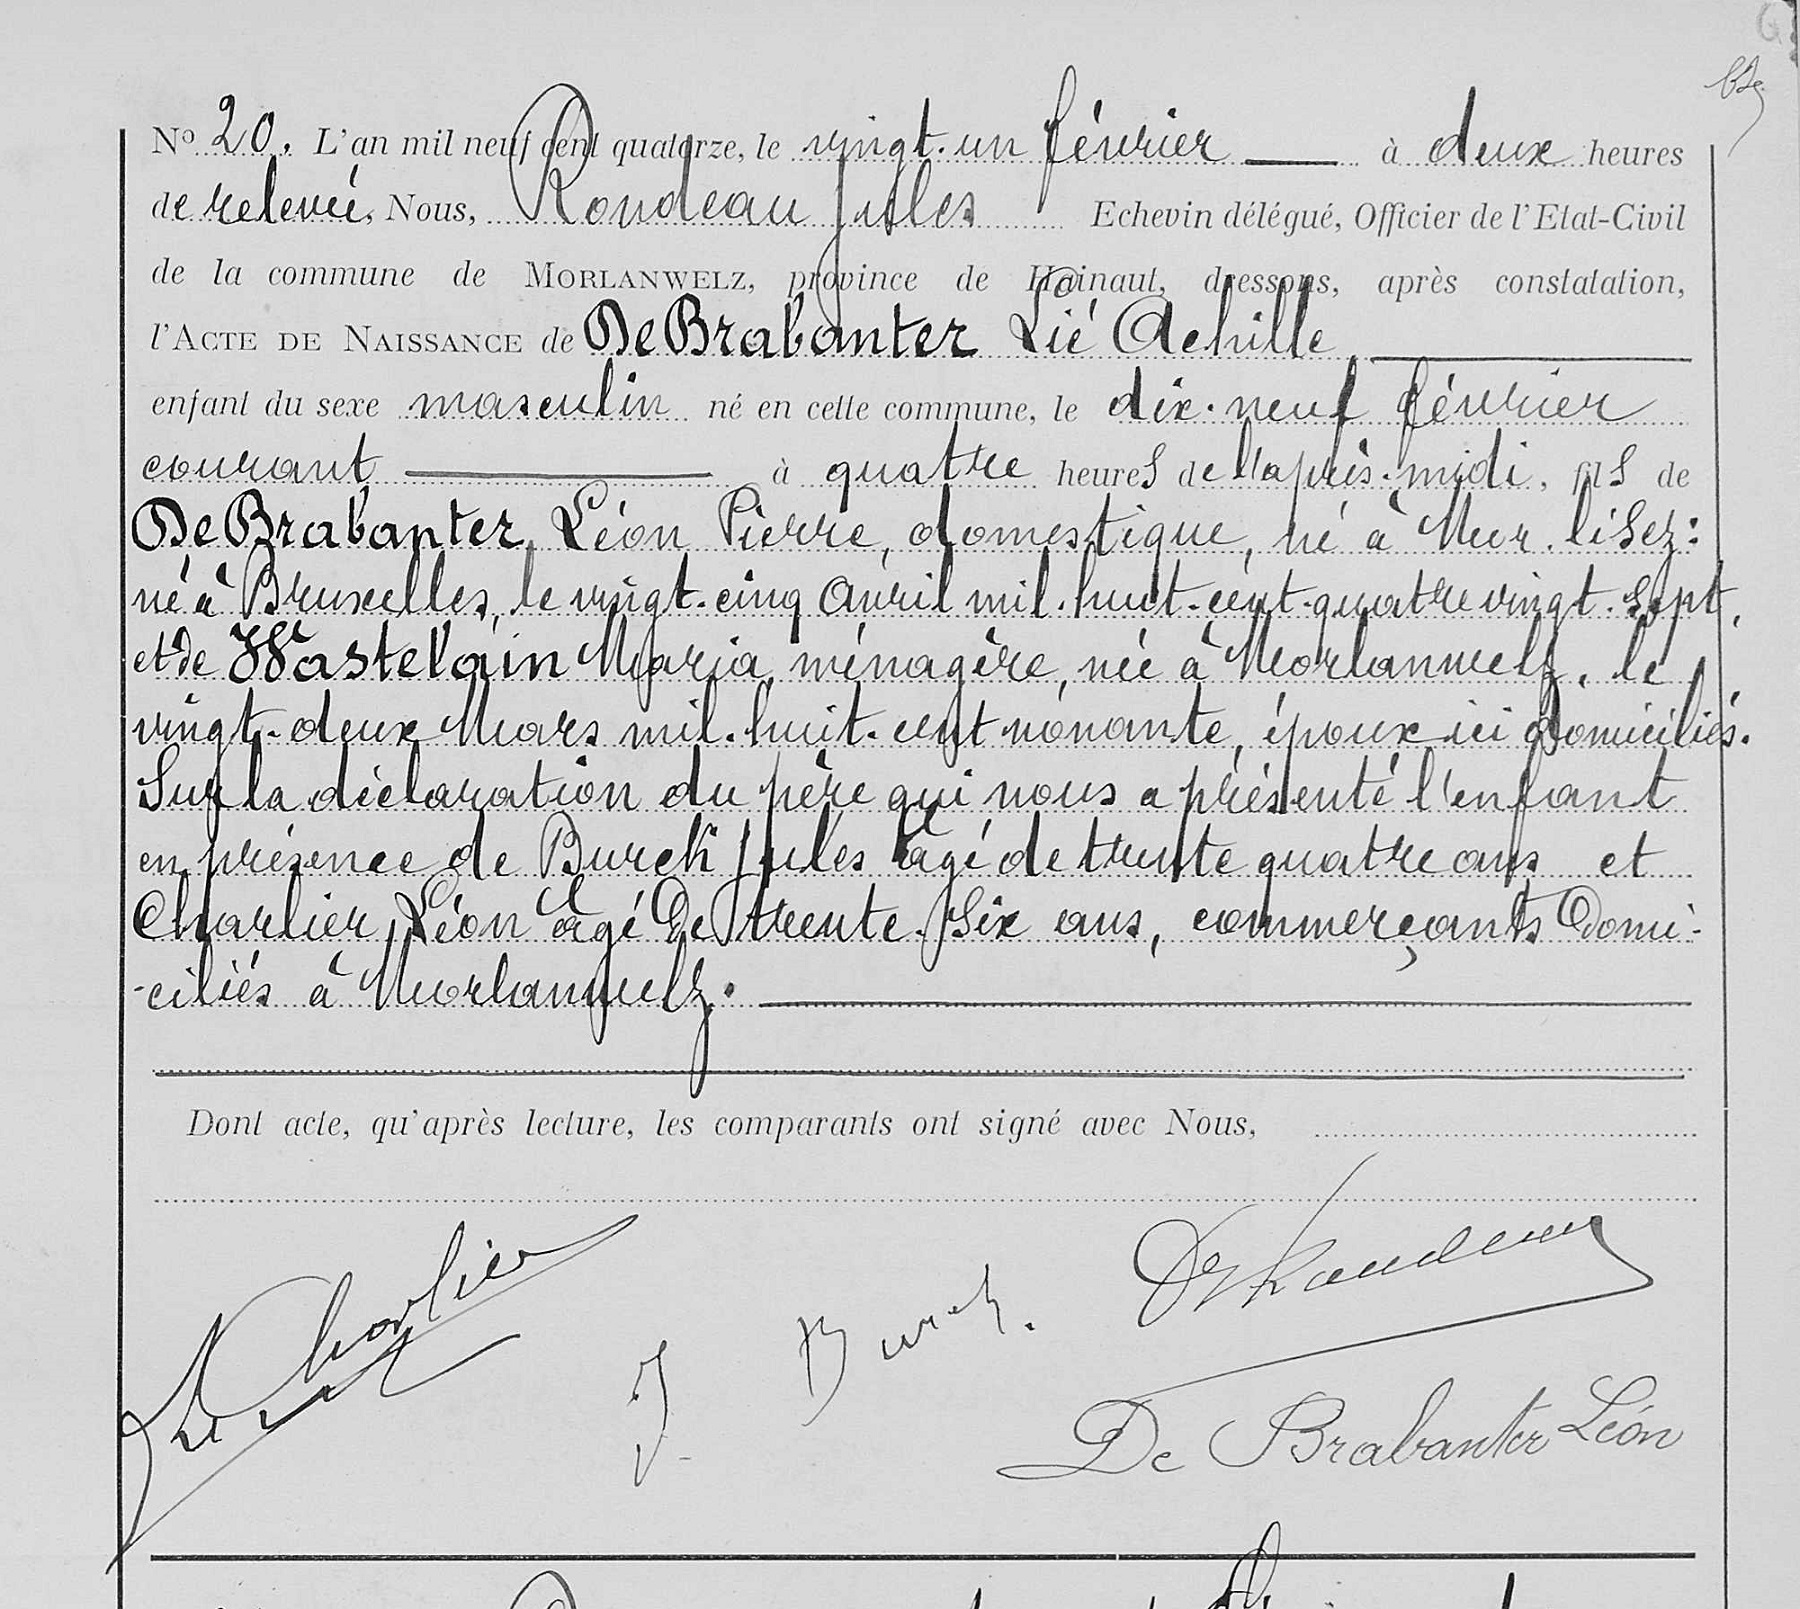 N° 20. L'an mil neuf cent quatorze, le vingt-un février à deux heures
de relevée, Nous, Rondeau Jules Echevin délégué, Officier de l'Etat-Civil
de la commune de MORLANWELZ, province de Hainaut, dressons, après constatation,
l'ACTE DE NAISSANCE de De Brabanter Lié Achille,
enfant du sexe masculin né en cette commune, le dix-neuf février
courant à quatre heures de l'après-midi, fils de
De Brabanter, Léon Pierre, domestique, né à Mor. lisez:
né à Bruxelles, le vingt-cinq Avril mil-huit-cent-quatre vingt-sept,
et de Wastelain Maria, ménagère, née à Morlanwelz, le
vingt-deux Mars mil-huit-cent nonante, époux ici domiciliés.
Sur la déclaration du père qui nous a présenté l'enfant
en présence de Burck Jules âgé de trente quatre ans et
Charlier, Léon âgé de trente-six ans, commerçants domi-
-ciliés à Morlanwelz.
Dont acte, qu'après lecture, les comparants ont signé avec Nous,
Charlier
J. Burck.
Rondeau
De Brabanter Léon